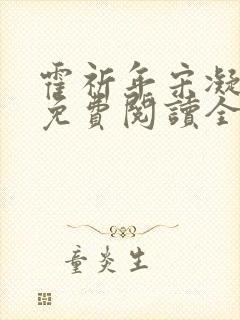 霍祈年宋凝
免費閱讀全
童炎生